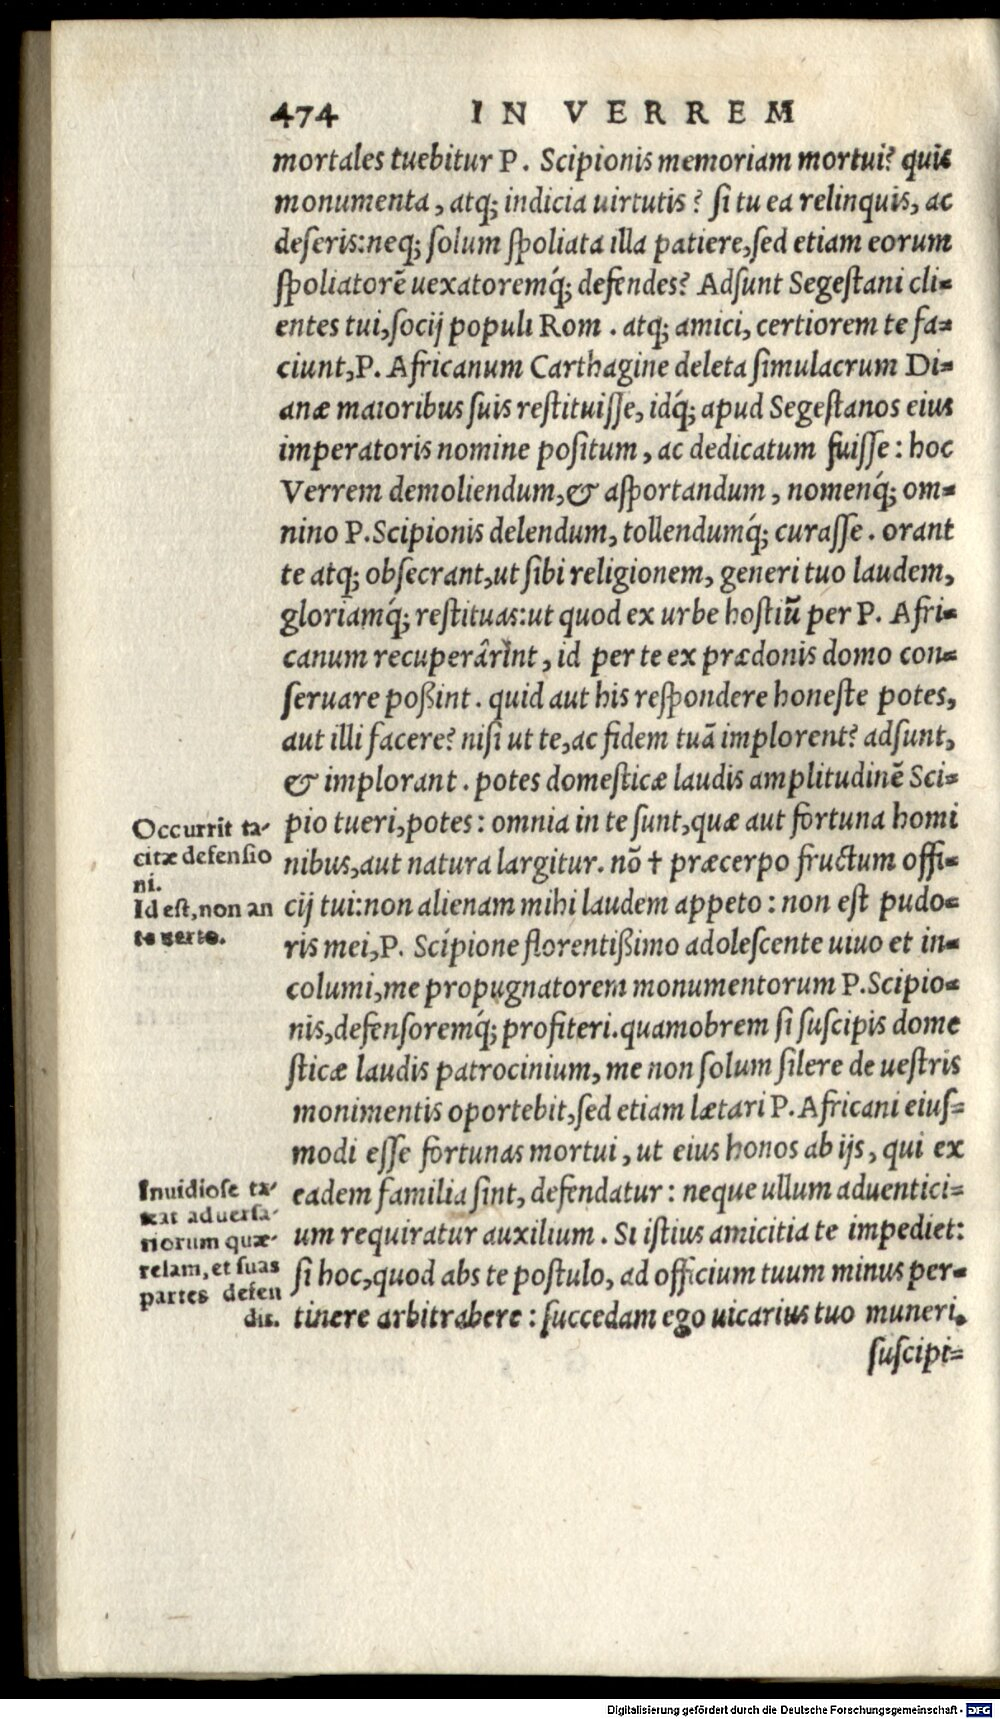 474 IN VERREM
mortales tuebitur P. Scipionis memoriam mortui? quis
monumenta, atq; indicia uirtutis? si tu ea relinquis, ac
deseris: neq; solum spoliata illa patiere, sed etiam eorum
spoliatorē uexatoremq́; defendes? Adsunt Segestani cli=
entes tui, socij populi Rom. atq; amici, certiorem te fa=
ciunt, P. Africanum Carthagine deleta simulacrum Di=
anæ maioribus suis restituisse, idq́; apud Segestanos eius
imperatoris nomine positum, ac dedicatum fuisse: hoc
Verrem demoliendum, & asportandum, nomenq́; om=
nino P. Scipionis delendum, tollendumq́; curasse. orant
te atq; obsecrant, ut sibi religionem, generi tuo laudem,
gloriamq́; restituas: ut quod ex urbe hostiū per P. Afri=
canum recuperârint, id per te ex prædonis domo con=
seruare poßint. quid aut his respondere honeste potes,
aut illi facere? nisi ut te, ac fidem tuā implorent? adsunt,
& implorant. potes domesticæ laudis amplitudinē Sci=
pio tueri, potes: omnia in te sunt, quæ aut fortuna homi
nibus, aut natura largitur. nō † præcerpo fructum offi=
cij tui: non alienam mihi laudem appeto: non est pudo=
ris mei, P. Scipione florentißimo adolescente uiuo et in=
columi, me propugnatorem monumentorum P. Scipio=
nis, defensoremq́; profiteri. quamobrem si suscipis dome
sticæ laudis patrocinium, me non solum silere de uestris
monimentis oportebit, sed etiam lætari P. Africani eius=
modi esse fortunas mortui, ut eius honos ab ijs, qui ex
eadem familia sint, defendatur: neque ullum aduentici=
um requiratur auxilium. Si istius amicitia te impediet:
si hoc, quod abs te postulo, ad officium tuum minus per=
tinere arbitrabere: succedam ego uicarius tuo muneri.
suscipi=
Occurrit ta-
citæ defensio
ni.
Id est, non an
te verto.
Inuidiose ta-
xat aduersa-
riorum quæ-
relam, et suas
partes defen
dit.
Digitalisierung gefördert durch die Deutsche Forschungsgemeinschaft - DFG